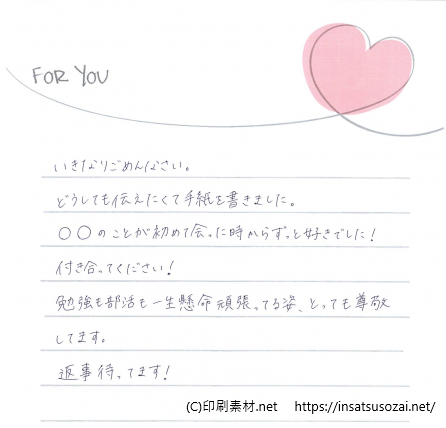 FOR YOU
いきなりごめんなさい。
どうしても伝えたくて手紙を書きました。
〇〇のことが初めて会った時からずっと好きでした!
付き合ってください!
勉強も部活も一生懸命頑張ってる姿、とっても尊敬
してます。
返事待ってます!
(C)印刷素材.net https://insatsusozai.net/